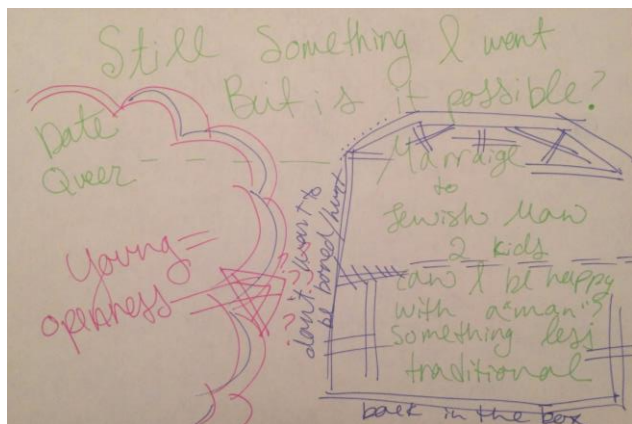 Still Something I want
But is it possible?
Date
Queer
Young =
openness
? ? ? ? ?
don't want to
be bored/hurt
Marraige
to
Jewish Man
2 kids
can I be happy
with a "man"?
something less
traditional
back in the box